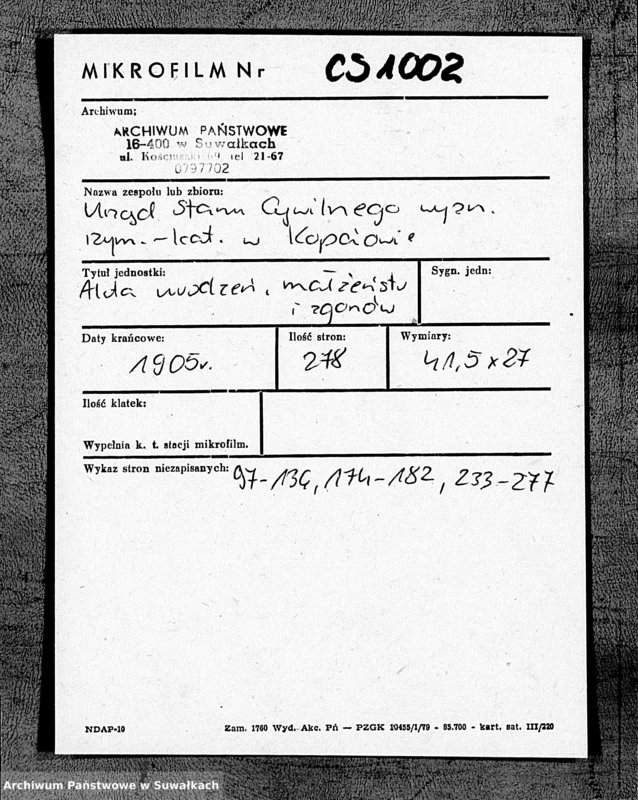 MIKROFILM Nr CS1002
Archiwum;
ARCHIWUM PAŃSTWOWE
16-400 w Suwałkach
ul. Kościuszki 69 tel 21-67
0797702
Nazwa zespołu lub zbioru:
Urząd Stanu Cywilnego wyzn.
rzym.-kat. w Kopciowie
Tytuł jednostki:
Sygn. jedn:
Akta urodzeń, małżeństw
i zgonów
Daty krańcowe:
Ilość stron:
Wymiary:
1905r.
278
41,5 x 27
Ilość klatek:
Wypełnia k. t. stacji mikrofilm.
Wykaz stron niezapisanych: 97-134, 174-182, 233-277
NDAP-10
Zam. 1760 Wyd. Akc. Pń — PZGK 10455/1/79 - 85.700 - kart. sat. III/220
Archiwum Państwowe w Suwałkach